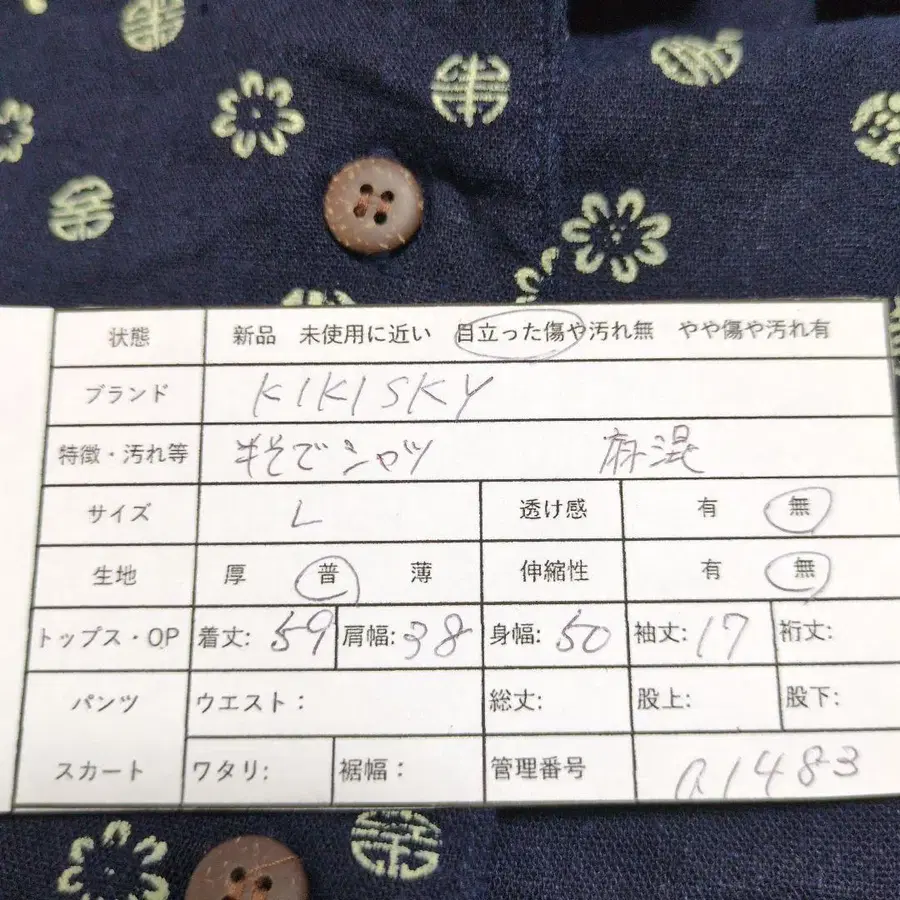 状態 新品 未使用に近い 目立った傷や汚れ無 やや傷や汚れ有
ブランド KIKISKY
特徴・汚れ等 半そでシャツ 麻混
サイズ L 透け感 有 無
生地 厚 普 薄 伸縮性 有 無
トップス・OP 着丈: 59 肩幅: 38 身幅: 50 袖丈: 17 裄丈:
パンツ ウエスト: 総丈: 股上: 股下:
スカート ワタリ: 裾幅: 管理番号 a1483